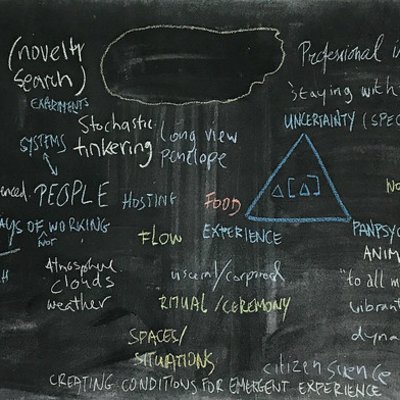 (novelty
search)
EXPERIMENTS
Professional i
Staying with
UNCERTAINTY (SPEC
Stochastic
tinkering
long view
penelope
SYSTEMS
enced.
PEOPLE
HOSTING
FOOD
EXPERIENCE
Δ[Δ]
AYS OF WORKING
NOT
FLOW
PANPSYC
ANIM
"to all m
vibrant
dyna
Atmosphere
clouds
weather
visceral/corporeal
RITUAL/CEREMONY
SPACES/
SITUATIONS
citizen science
CREATING CONDITIONS FOR EMERGENT EXPERIENCE